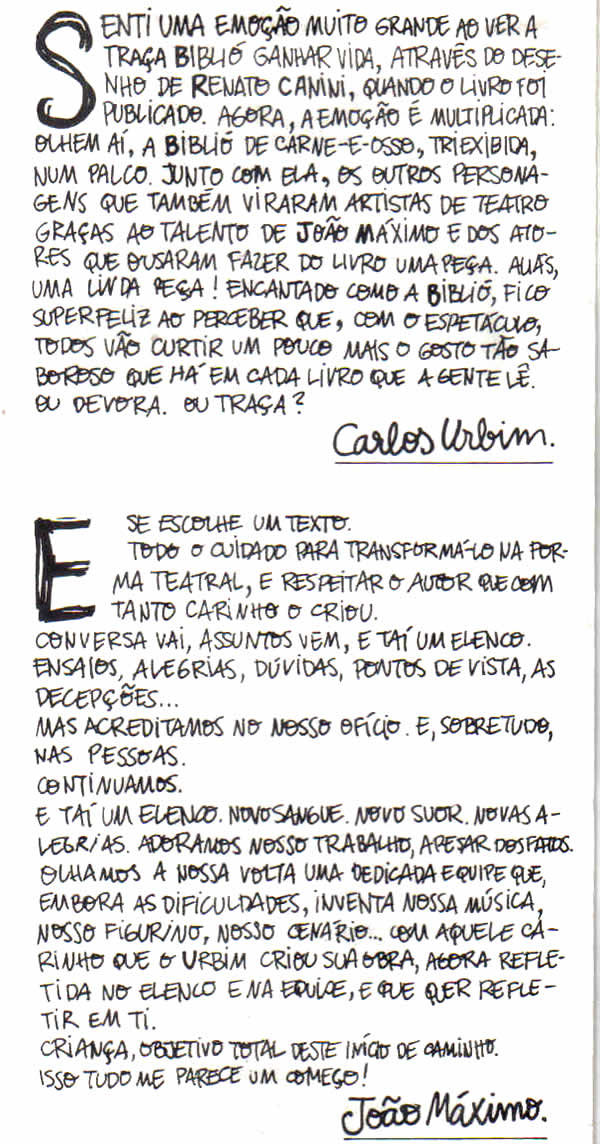 SENTI UMA EMOÇÃO MUITO GRANDE AO VER A
TRAÇA BIBLIÓ GANHAR VIDA, ATRAVÉS DO DESE-
NHO DE RENATO CANINI, QUANDO O LIVRO FOI
PUBLICADO. AGORA, A EMOÇÃO É MULTIPLICADA:
OLHEM AÍ, A BIBLIÓ DE CARNE-E-OSSO, TRIEXIBIDA,
NUM PALCO. JUNTO COM ELA, OS OUTROS PERSONA-
GENS QUE TAMBÉM VIRARAM ARTISTAS DE TEATRO
GRAÇAS AO TALENTO DE JOÃO MÁXIMO E DOS ATO-
RES QUE OUSARAM FAZER DO LIVRO UMA PEÇA. ALIÁS,
UMA LINDA PEÇA! ENCANTADO COMO A BIBLIÓ, FICO
SUPERFELIZ AO PERCEBER QUE, COM O ESPETÁCULO,
TODOS VÃO CURTIR UM POUCO MAIS O GOSTO TÃO SA-
BOROSO QUE HÁ EM CADA LIVRO QUE A GENTE LÊ.
OU DEVORA. OU TRAÇA?
Carlos Urbim.
E SE ESCOLHE UM TEXTO.
TODO O CUIDADO PARA TRANSFORMÁ-LO NA FOR-
MA TEATRAL, E RESPEITAR O AUTOR QUE COM
TANTO CARINHO O CRIOU.
CONVERSA VAI, ASSUNTOS VEM, E TAÍ UM ELENCO.
ENSAIOS, ALEGRIAS, DÚVIDAS, PONTOS DE VISTA, AS
DECEPÇÕES...
MAS ACREDITAMOS NO NOSSO OFÍCIO. E, SOBRETUDO,
NAS PESSOAS.
CONTINUAMOS.
E TAÍ UM ELENCO. NOVO SANGUE. NOVO SUOR. NOVAS A-
LEGRIAS. ADORAMOS NOSSO TRABALHO, APESAR DOS FATOS.
OLHAMOS A NOSSA VOLTA UMA DEDICADA EQUIPE QUE,
EMBORA AS DIFICULDADES, INVENTA NOSSA MÚSICA,
NOSSO FIGURINO, NOSSO CENÁRIO... COM AQUELE CA-
RINHO QUE O URBIM CRIOU SUA OBRA, AGORA REFLE-
TIDA NO ELENCO E NA EQUIPE, E QUE QUER REFLE-
TIR EM TI.
CRIANÇA, OBJETIVO TOTAL DESTE INÍCIO DE CAMINHO.
ISSO TUDO ME PARECE UM COMEÇO!
João Máximo.